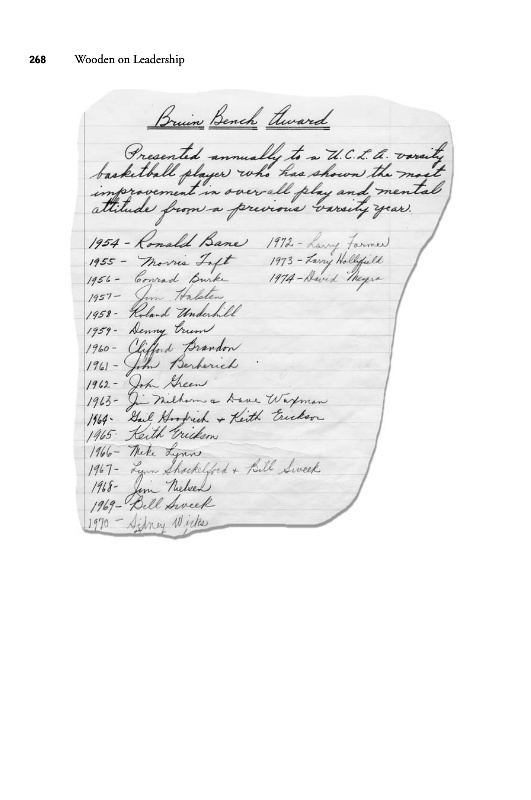 268 Wooden on Leadership
Bruin Bench Award
Presented annually to a U.C.L.A. varsity
basketball player who has shown the most
improvement in overall play and mental
attitude from a previous varsity year.
1954 - Ronald Bane
1955 - Morris Taft
1956 - Conrad Burke
1957 - Jim Halsten
1958 - Roland Underhill
1959 - Denny Crum
1960 - Clifford Brandon
1961 - John Berberich
1962 - John Green
1963 - Jim Milhorn & Dave Waxman
1964 - Gail Goodrich + Keith Erickson
1965 - Keith Erickson
1966 - Mike Lynn
1967 - Lynn Shackelford + Bill Sweek
1968 - Jim Nielsen
1969 - Bill Sweek
1970 - Sidney Wicks
1972 - Larry Farmer
1973 - Larry Hollyfield
1974 - David Meyers